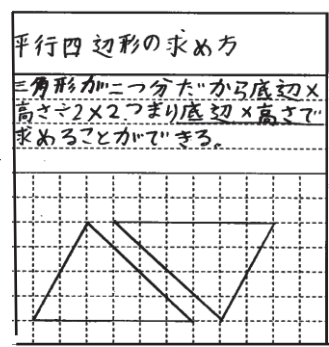 平行四辺形の求め方
三角形が二つ分だから底辺×
高さ÷2×2つまり底辺×高さで
求めることができる。